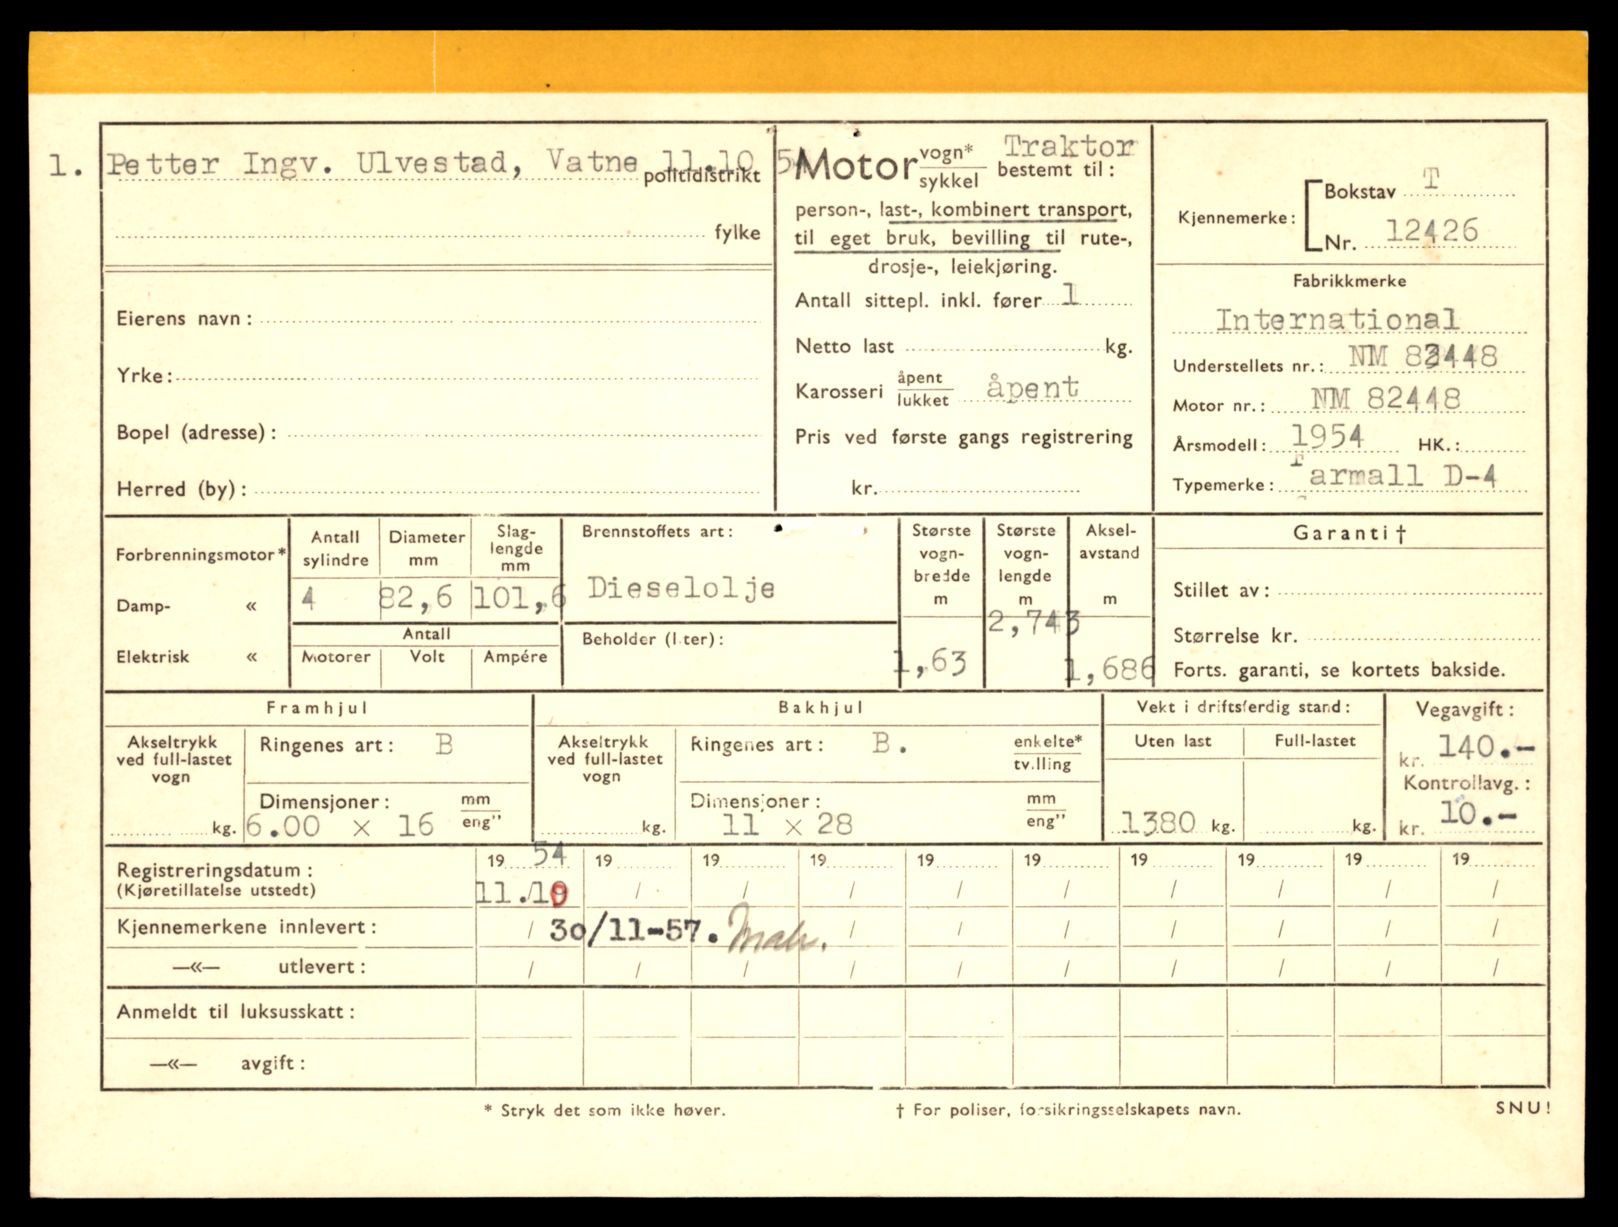 1. Petter Ingv. Ulvestad, Vatne 11.10 54
politidistrikt
fylke
Eierens navn:
Yrke:
Bopel (adresse):
Herred (by):
Motor vogn* Traktor
sykkel bestemt til:
person-, last-, kombinert transport,
til eget bruk, bevilling til rute-,
drosje-, leiekjøring.
Antall sittepl. inkl. fører 1
Netto last kg.
Karosseri åpent
lukket åpent
Pris ved første gangs registrering
kr.
Kjennemerke: Bokstav T
Nr. 12426
Fabrikkmerke
International
Understellets nr.: NM 82448
Motor nr.: NM 82448
Årsmodell: 1954 HK.:
Typemerke: Farmall D-4
Forbrenningsmotor*
Damp- «
Elektrisk «
Antall sylindre
4
Diameter mm
82,6
Slag-
lengde
mm
101,6
Antall
Motorer Volt Ampére
Brennstoffets art:
Dieselolje
Beholder (liter):
Største
vogn-
bredde
m
1,63
Største
vogn-
lengde
m
2,743
Aksel-
avstand
m
1,686
Garanti †
Stillet av:
Størrelse kr.
Forts. garanti, se kortets bakside.
Framhjul
Akseltrykk
ved full-lastet
vogn
kg.
Ringenes art: B
Dimensjoner: mm
eng"
6.00 x 16
Bakhjul
Akseltrykk
ved full-lastet
vogn
kg.
Ringenes art: B. enkelte*
tvilling
Dimensjoner: mm
eng"
11 x 28
Vekt i driftsferdig stand:
Uten last Full-lastet
1380 kg. kg.
Vegavgift:
kr. 140.-
Kontrollavg.:
kr. 10.-
Registreringsdatum:
(Kjøretillatelse utstedt)
19 54 19 19 19 19 19 19 19 19 19
11./10 / / / / / / / / /
Kjennemerkene innlevert: / 30/11-57. / / / / / / /
—«— utlevert: / / / / / / / / / /
Anmeldt til luksusskatt:
—«— avgift:
* Stryk det som ikke høver.
† For poliser, forsikringsselskapets navn.
SNU!